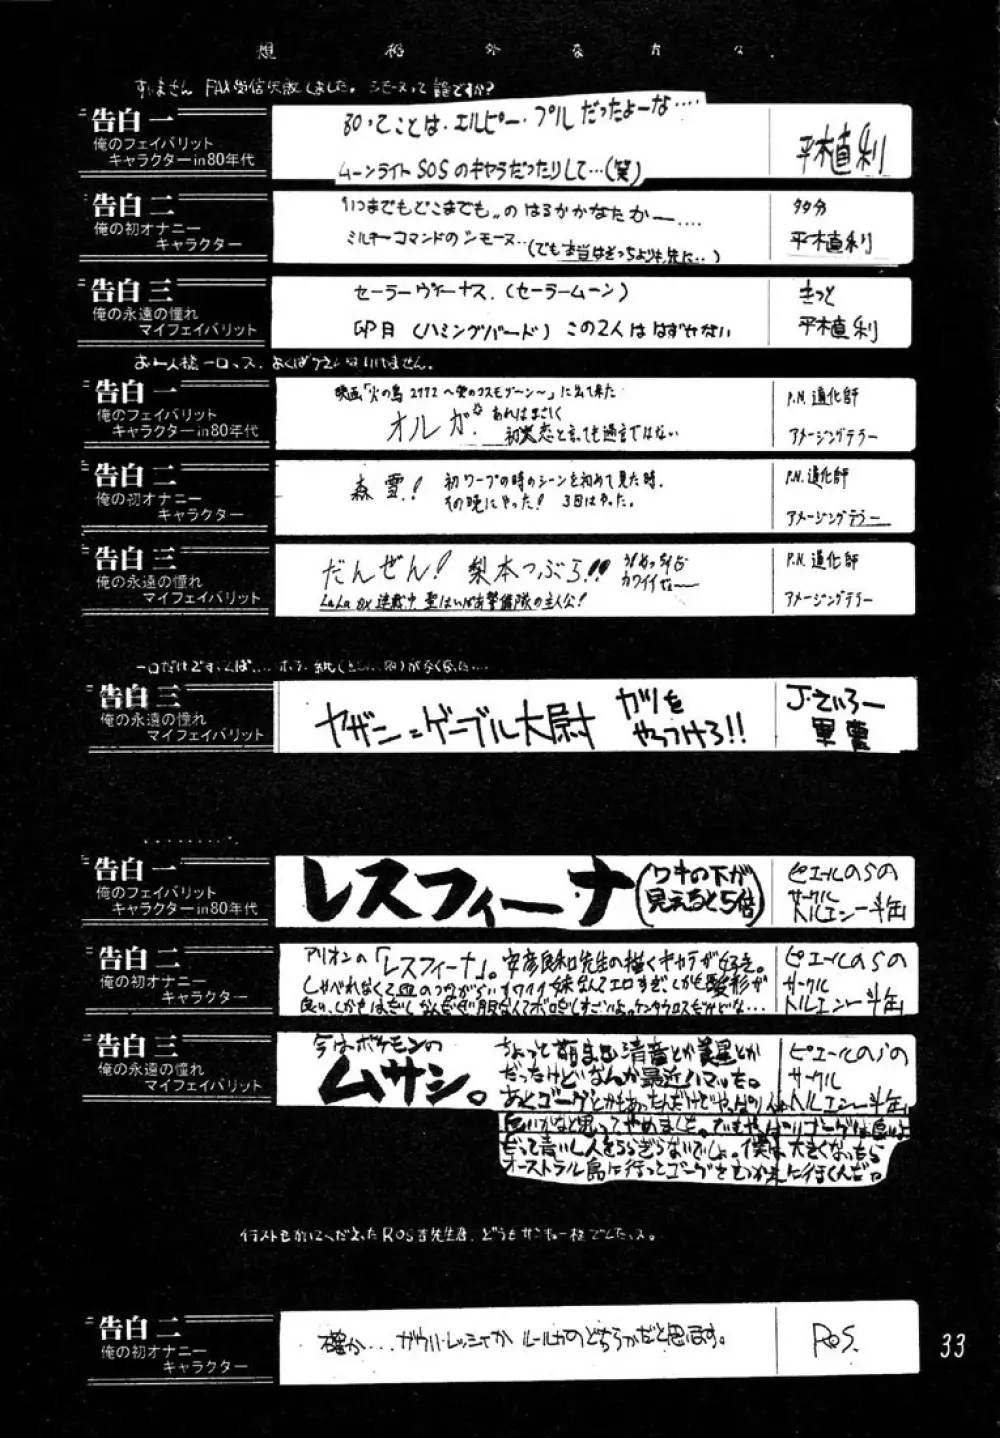 すいません FAX受信失敗しました。シモーヌって誰ですか?
告白 一
俺のフェイバリット
キャラクターin80年代
80ってことは・エルピー・プルだったよーな‥‥
ムーンライトSOSのキャラだったりして…(笑)
平木直利
告白 二
俺の初オナニー
キャラクター
"いつまでもどこまでも"のはるかかなたかー‥‥
ミルキーコマンドのシモーヌ‥(でも本当はそっちよりも先に‥)
多分
平木直利
告白 三
俺の永遠の憧れ
マイフェイバリット
セーラーヴィーナス.(セーラームーン)
卯月(ハミングバード)この2人ははずせない
きっと
平木直利
告白 一
俺のフェイバリット
キャラクターin80年代
映画「火の鳥2772~愛のコスモゾーン~」に出て来た
オルガ。
あれはまさしく
初恋と言っても過言ではない
P.N.道化師
アメージングテラー
告白 二
俺の初オナニー
キャラクター
森雪!
初ワープの時のシーンを初めて見た時、
その晩にやった! 3回はやった。
P.N.道化師
アメージングテラー
告白 三
俺の永遠の憧れ
マイフェイバリット
だんぜん! 梨本つぶら!!
カワイイなー
LaLa DX連載中 聖はいぱあ警備隊の主人公!
P.N.道化師
アメージングテラー
告白 三
俺の永遠の憧れ
マイフェイバリット
ヤザン=ゲーブル大尉
カツを
やっつけろ!!
J・さいろー
軍曹
告白 一
俺のフェイバリット
キャラクターin80年代
レスフィーナ
(ワキの下が
見えると5倍)
ピエールのらの
サークル
トルエン一斗缶
告白 二
俺の初オナニー
キャラクター
アリオンの「レスフィーナ」。安彦良和先生の描くキャラが好き。
しゃべれなくて血のつながらない妹なんてエロすぎ、しかも髪形が
ピエールのらの
サークル
トルエン一斗缶
告白 三
俺の永遠の憧れ
マイフェイバリット
今はポケモンの
ムサシ。
ちょっと前まで清音とか美星とか
だったけどなんか最近ハマった。
あとゴーグとかもあったんだけどやっぱり
良いかなと思ってやめました。でもやっぱりゴーグは良いよ
だって青い人をうらぎらないでしょ。僕は大きくなったら
オーストラル島に行ってゴーグをむかえに行くんだ。
ピエールのらの
サークル
トルエン一斗缶
告白 二
俺の初オナニー
キャラクター
確か‥‥ガウ・ハ・レッシィかルールカのどちらかだと思います。
RoS.
33